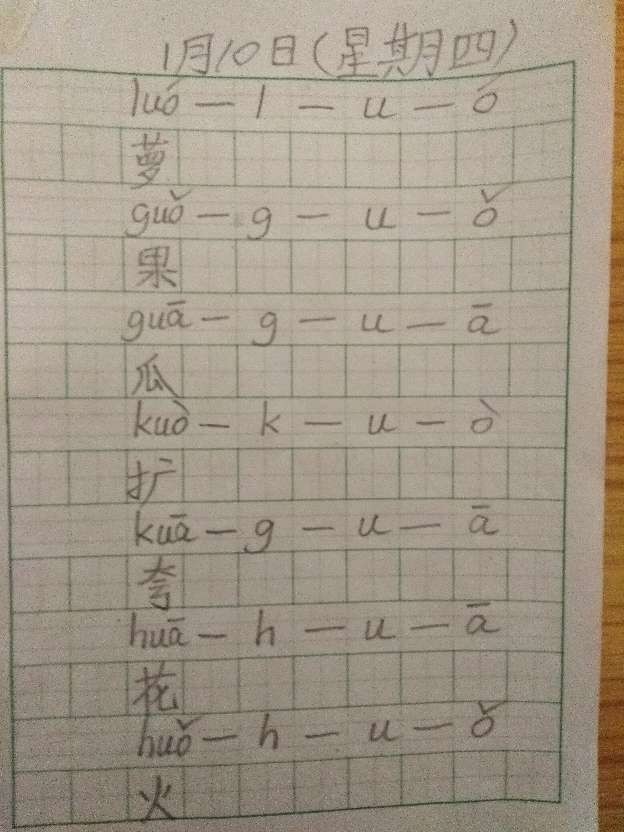 1月10日(星期四)
luó — l — u — ó
萝
guǒ — g — u — ǒ
果
guā — g — u — ā
瓜
kuò — k — u — ò
扩
kuā — g — u — ā
夸
huā — h — u — ā
花
huǒ — h — u — ǒ
火